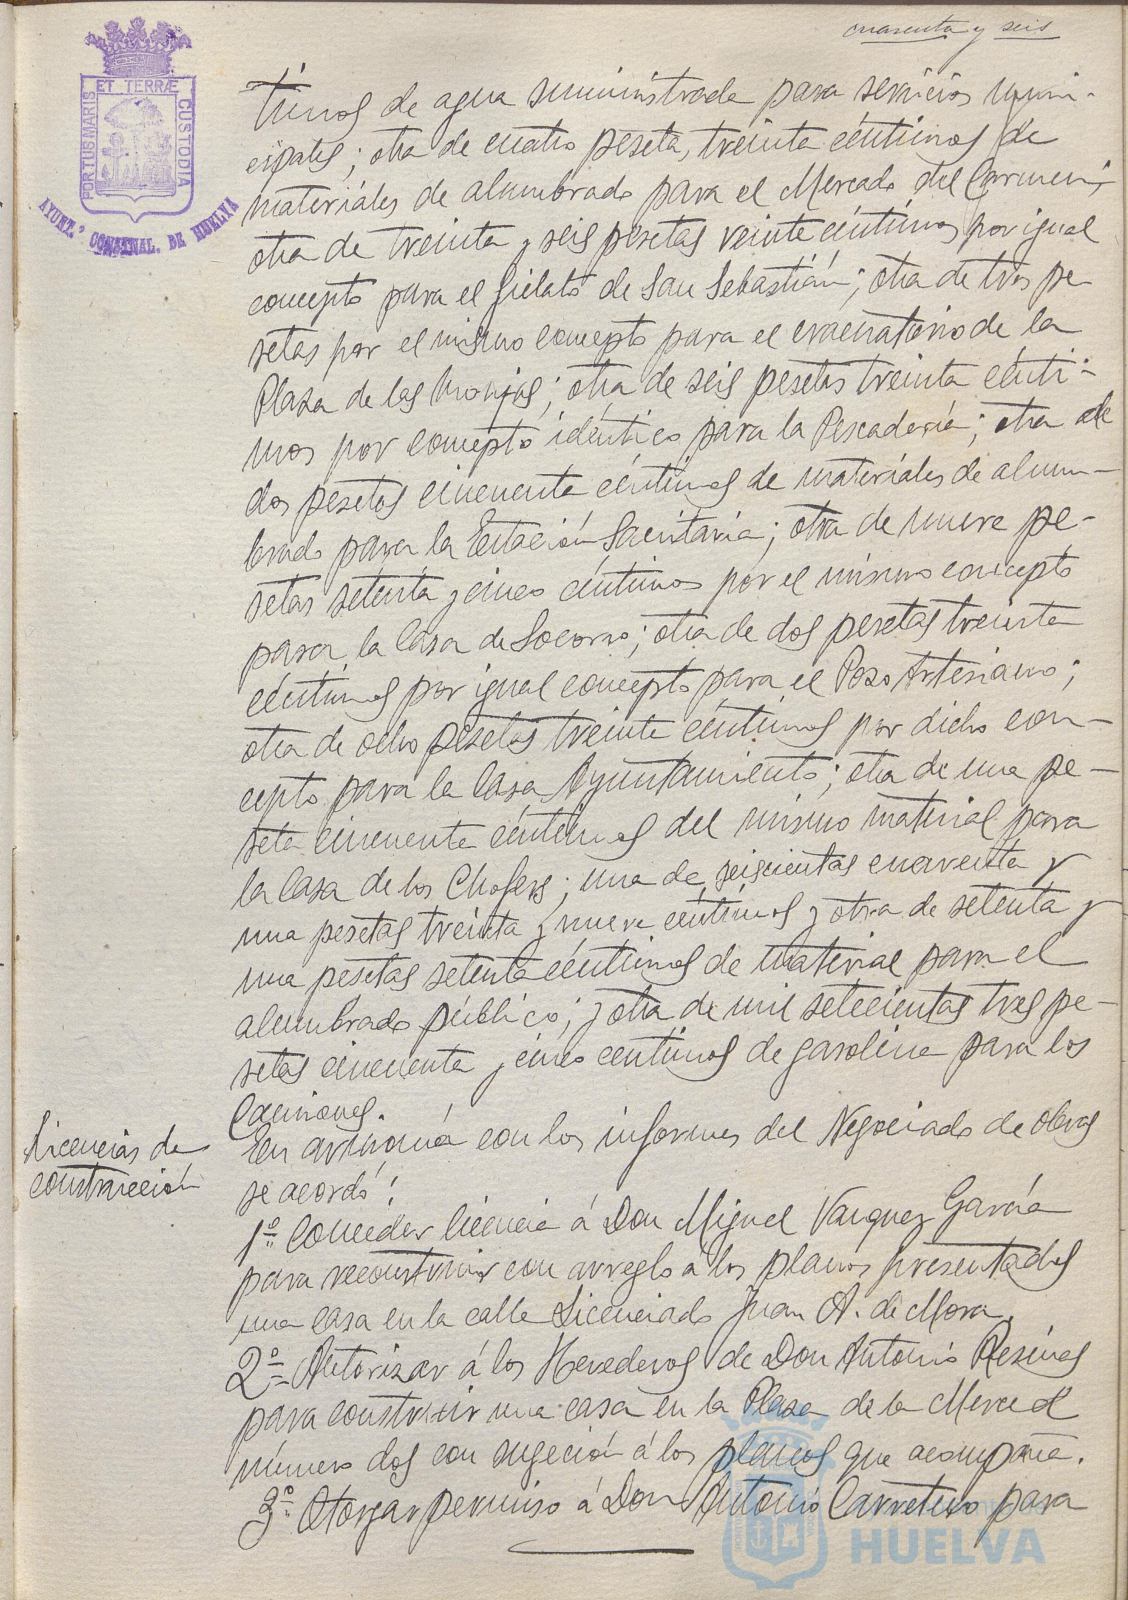 cuarenta y seis
PORTUS MARIS ET TERRÆ CUSTODIA
AYUNT.º CONSTNAL. DE HUELVA
timos de agua suministrada para servicios muni-
cipales; otra de cuatro peseta, treinta céntimos de
materiales de alumbrado para el Mercado del Carmen;
otra de treinta y seis pesetas veinte céntimos por igual
concepto para el fielato de San Sebastián; otra de tres pe
setas por el mismo concepto para el evacuatorio de la
Plaza de las Monjas; otra de seis pesetas treinta cénti-
mos por concepto idéntico para la Pescadería; otra de
dos pesetas cincuenta céntimos de materiales de alum-
brado para la Estación Sanitaria; otra de nueve pe-
setas setenta y cinco céntimos por el mismo concepto
para la Casa de Socorro; otra de dos pesetas treinta
céntimos por igual concepto para el Pozo Artesiano;
otra de ocho pesetas treinta céntimos por dicho con-
cepto para la Casa Ayuntamiento; otra de una pe-
seta cincuenta céntimos del mismo material para
la Casa de los Chofers; una de seiscientas cuarenta y
una pesetas treinta y nueve céntimos y otra de setenta y
una pesetas setenta céntimos de material para el
alumbrado público; y otra de mil setecientas tres pe-
setas cincuenta y cinco centimos de gasolina para los
Camiones.
Licencias de
construcción
En armonía con los informes del Negociado de Obras
se acordó:
1º Conceder licencia á Don Miguel Vazquez García
para reconstruir con arreglo a los planos presentados
una casa en la calle Licenciado Juan A. de Mora.
2º Autorizar á los Herederos de Don Antonio Resines
para construir una casa en la Plaza de la Merced
número dos con sugeción á los planos que acompaña.
3º Otorgar permiso á Don Antonio Carretero para
HUELVA